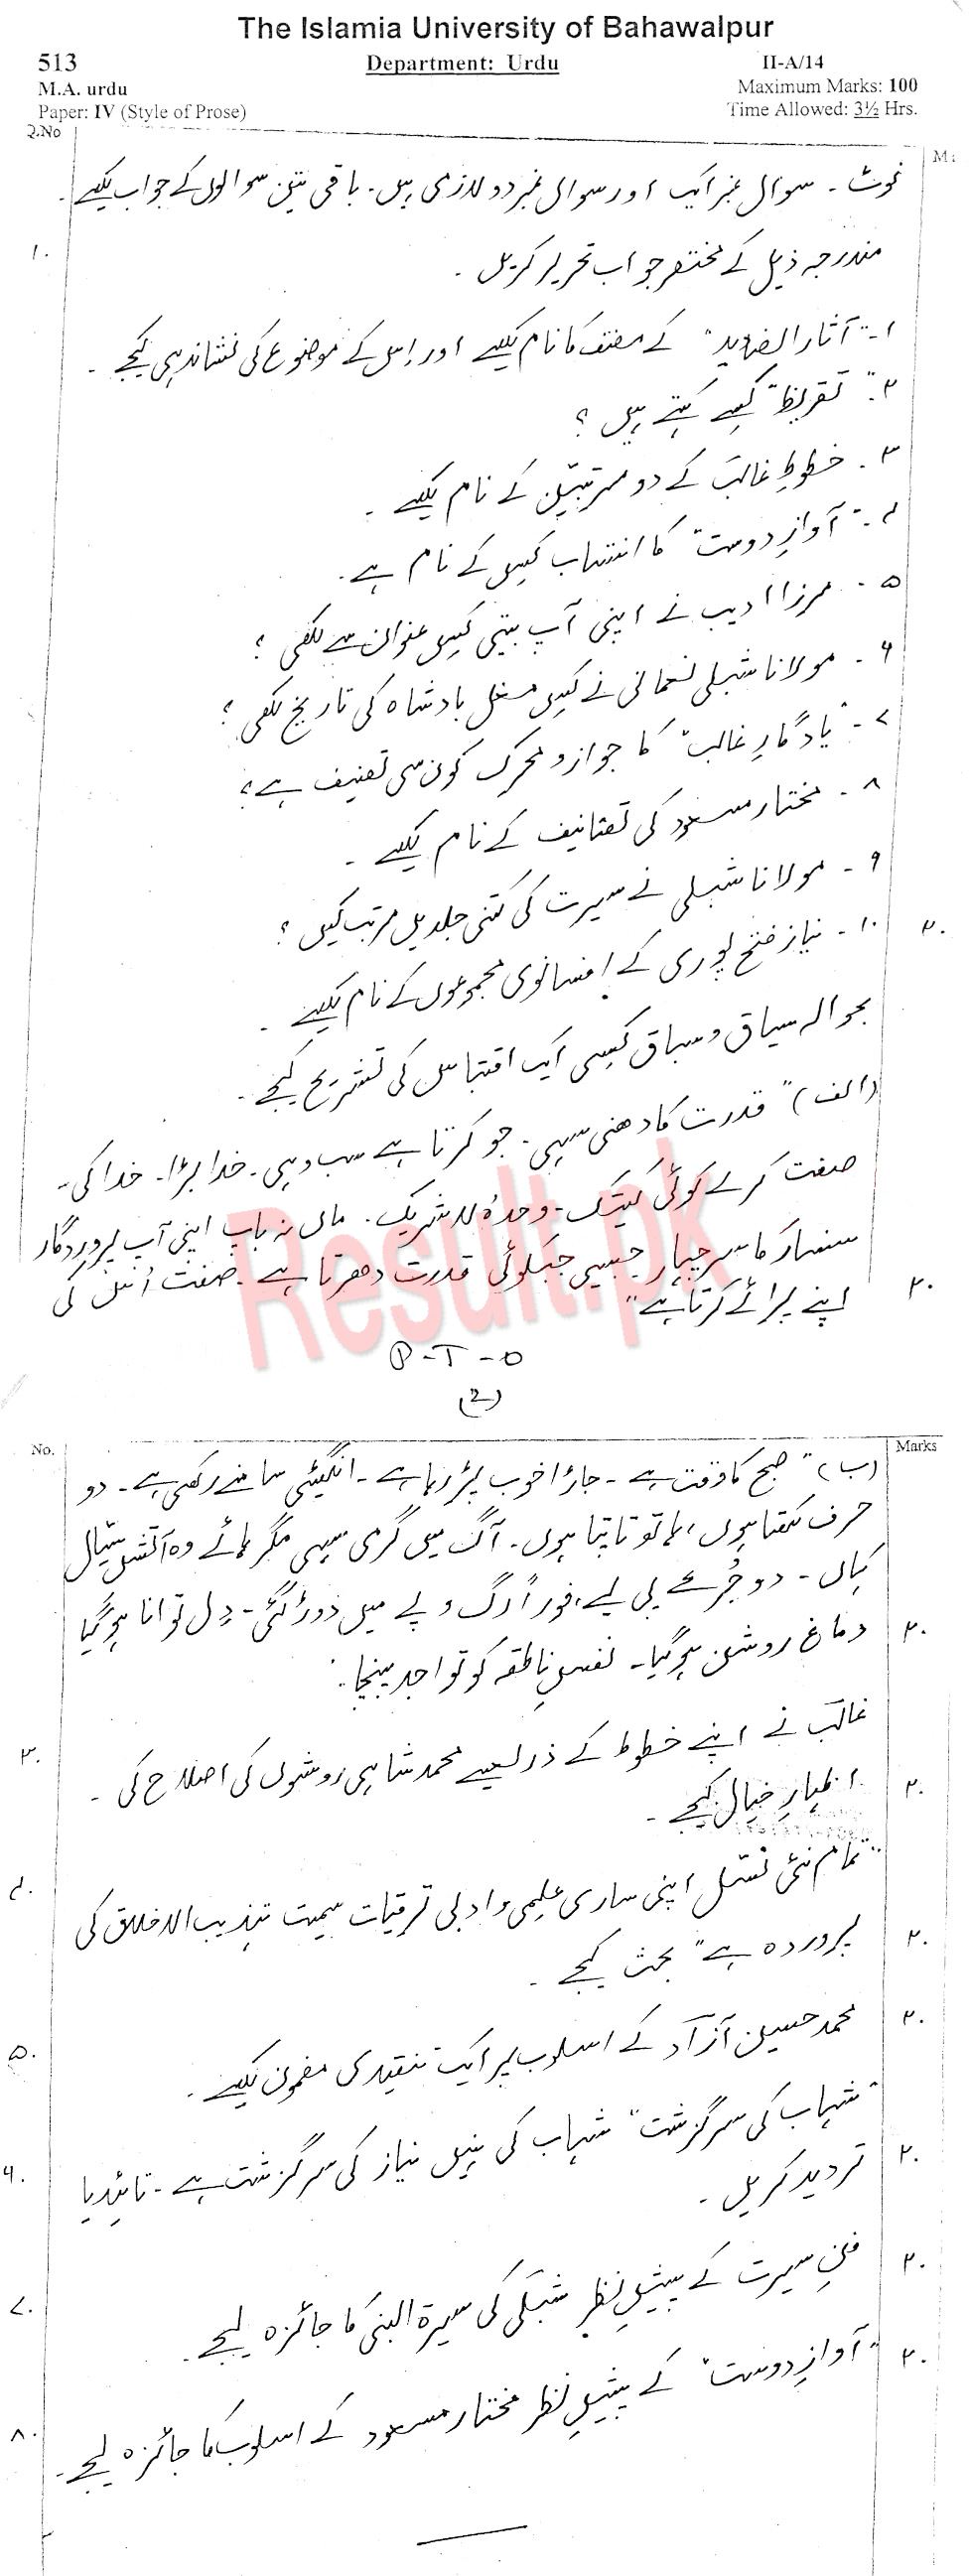 The Islamia University of Bahawalpur
513 Department: Urdu II-A/14
M.A. urdu Maximum Marks: 100
Paper: IV (Style of Prose) Time Allowed: 3½ Hrs.
Q.No M:
نوٹ۔ سوال نمبر ایک اور سوال نمبر دو لازمی ہیں۔ باقی تین سوالوں کے جواب لکھیے۔
۱. مندرجہ ذیل کے مختصر جواب تحریر کریں۔
۱۔ "آثار الصنادید" کے مصنف کا نام لکھیے اور اس کے موضوع کی نشاندہی کیجیے۔
۲۔ "تقریظ" کسے کہتے ہیں؟
۳۔ خطوطِ غالب کے دو مرتبین کے نام لکھیے۔
۴۔ "آوازِ دوست" کا انتساب کس کے نام ہے۔
۵۔ مرزا ادیب نے اپنی آپ بیتی کس عنوان سے لکھی؟
۶۔ مولانا شبلی نعمانی نے کس مغل بادشاہ کی تاریخ لکھی؟
۷۔ "یادگارِ غالب" کا جواز و محرک کون سی تصنیف ہے؟
۸۔ مختار مسعود کی تصانیف کے نام لکھیے۔
۹۔ مولانا شبلی نے سیرت کی کتنی جلدیں مرتب کیں؟
۱۰۔ نیاز فتح پوری کے افسانوی مجموعوں کے نام لکھیے۔ ۲۰
بحوالہ سیاق و سباق کسی ایک اقتباس کی تشریح کیجیے۔
(الف) "قدرت کا دھنی سہی۔ جو کرتا ہے سب وہی۔ خدا بڑا۔ خدا کی۔
صفت کرے کوئی کیتک۔ وحدہٗ لاشریک۔ ماں نہ باپ اپنی آپ پروردگار
سنسار کا سرجہار جیسی جکوئی قدرت دھرتا ہے۔ صفت اُس کی
اپنے پرائے کرتا ہے" ۲۰
Result.pk
P-T-O
(2)
No. Marks
(ب) "صبح کا وقت ہے۔ جاڑا خوب پڑ رہا ہے۔ انگیٹھی سامنے رکھی ہے۔ دو
حرف لکھتا ہوں، ہاتھ تاپتا ہوں۔ آگ میں گرمی سہی مگر ہائے وہ آتشِ سیّال
کہاں۔ دو جُرعے پی لیے، فوراً رگ و پے میں دوڑ گئی۔ دل توانا ہو گیا
دماغ روشن ہو گیا۔ نفسِ ناطقہ کو تواجد پہنچا۔" ۲۰
۳. غالب نے اپنے خطوط کے ذریعے محمد شاہی روشوں کی اصلاح کی۔
اظہارِ خیال کیجیے۔ ۲۰
۴. "تمام نئی نسل اپنی ساری علمی و ادبی ترقیات سمیت تہذیب الاخلاق کی
پروردہ ہے" بحث کیجیے۔ ۲۰
۵. محمد حسین آزاد کے اسلوب پر ایک تنقیدی مضمون لکھیے۔ ۲۰
۶. "شہاب کی سرگزشت" شہاب کی نہیں نیاز کی سرگزشت ہے۔ تائید یا
تردید کریں۔ ۲۰
۷. فنِ سیرت کے پیشِ نظر شبلی کی سیرۃ النبی کا جائزہ لیجیے۔ ۲۰
۸. "آوازِ دوست" کے پیشِ نظر مختار مسعود کے اسلوب کا جائزہ لیجیے۔ ۲۰